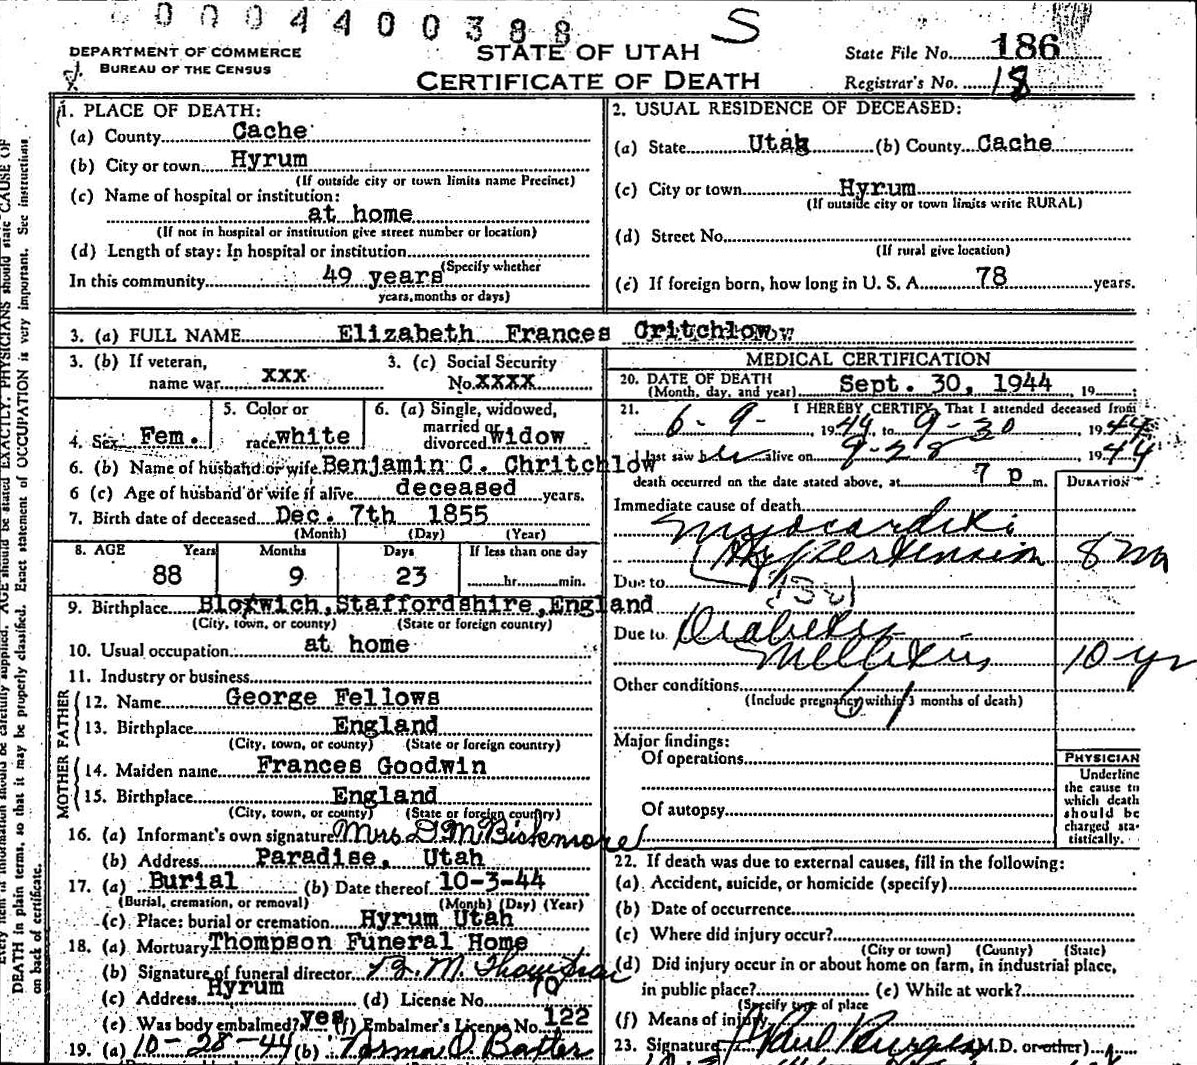 0004400388 S
DEPARTMENT OF COMMERCE
BUREAU OF THE CENSUS
STATE OF UTAH
CERTIFICATE OF DEATH
State File No. 186
Registrar's No. 18
1. PLACE OF DEATH:
(a) County Cache
(b) City or town Hyrum
(If outside city or town limits name Precinct)
(c) Name of hospital or institution:
at home
(If not in hospital or institution give street number or location)
(d) Length of stay: In hospital or institution
(Specify whether
In this community 49 years
years, months or days)
2. USUAL RESIDENCE OF DECEASED:
(a) State Utah (b) County Cache
(c) City or town Hyrum
(If outside city or town limits write RURAL)
(d) Street No.
(If rural give location)
(e) If foreign born, how long in U. S. A. 78 years.
3. (a) FULL NAME Elizabeth Frances Critchlow
3. (b) If veteran, name war xxx
3. (c) Social Security No. xxxx
4. Sex Fem.
5. Color or race white
6. (a) Single, widowed, married or divorced Widow
6. (b) Name of husband or wife Benjamin C. Chritchlow
6 (c) Age of husband or wife if alive deceased years.
7. Birth date of deceased Dec. 7th 1855
(Month) (Day) (Year)
8. AGE Years Months Days If less than one day
88 9 23 hr. min.
9. Birthplace Bloxwich, Staffordshire, England
(City, town, or county) (State or foreign country)
10. Usual occupation at home
11. Industry or business
FATHER
12. Name George Fellows
13. Birthplace England
(City, town, or county) (State or foreign country)
MOTHER
14. Maiden name Frances Goodwin
15. Birthplace England
(City, town, or county) (State or foreign country)
16. (a) Informant's own signature Mrs. D M Bickmore
(b) Address Paradise, Utah
17. (a) Burial (b) Date thereof 10-3-44
(Burial, cremation, or removal) (Month) (Day) (Year)
(c) Place: burial or cremation Hyrum Utah
18. (a) Mortuary Thompson Funeral Home
(b) Signature of funeral director M Thompson
(c) Address Hyrum (d) License No. 70
(e) Was body embalmed? yes (f) Embalmer's License No. 122
19. (a) 10-28-44 (b) Norma O. Baxter
MEDICAL CERTIFICATION
20. DATE OF DEATH Sept. 30, 1944, 19
(Month, day, and year)
21. I HEREBY CERTIFY, That I attended deceased from
6-9- 1944, to 9-30 1944
I last saw her alive on 9-28 1944
death occurred on the date stated above, at 7 p m.
DURATION
Immediate cause of death
Myocarditis
Hypertension 8 mo
Due to
Due to Diabetes
Mellitus 10 yr
Other conditions
(Include pregnancy within 3 months of death)
61
Major findings:
Of operations
Of autopsy
PHYSICIAN
Underline
the cause to
which death
should be
charged sta-
tistically.
22. If death was due to external causes, fill in the following:
(a) Accident, suicide, or homicide (specify)
(b) Date of occurrence
(c) Where did injury occur?
(City or town) (County) (State)
(d) Did injury occur in or about home on farm, in industrial place,
in public place? (e) While at work?
(Specify type of place
(f) Means of injury
23. Signature Paul Burgess (M.D. or other)
DEATH in plain terms, so that it may be properly classified. Exact statement of OCCUPATION is very important. See instructions
on back of certificate.